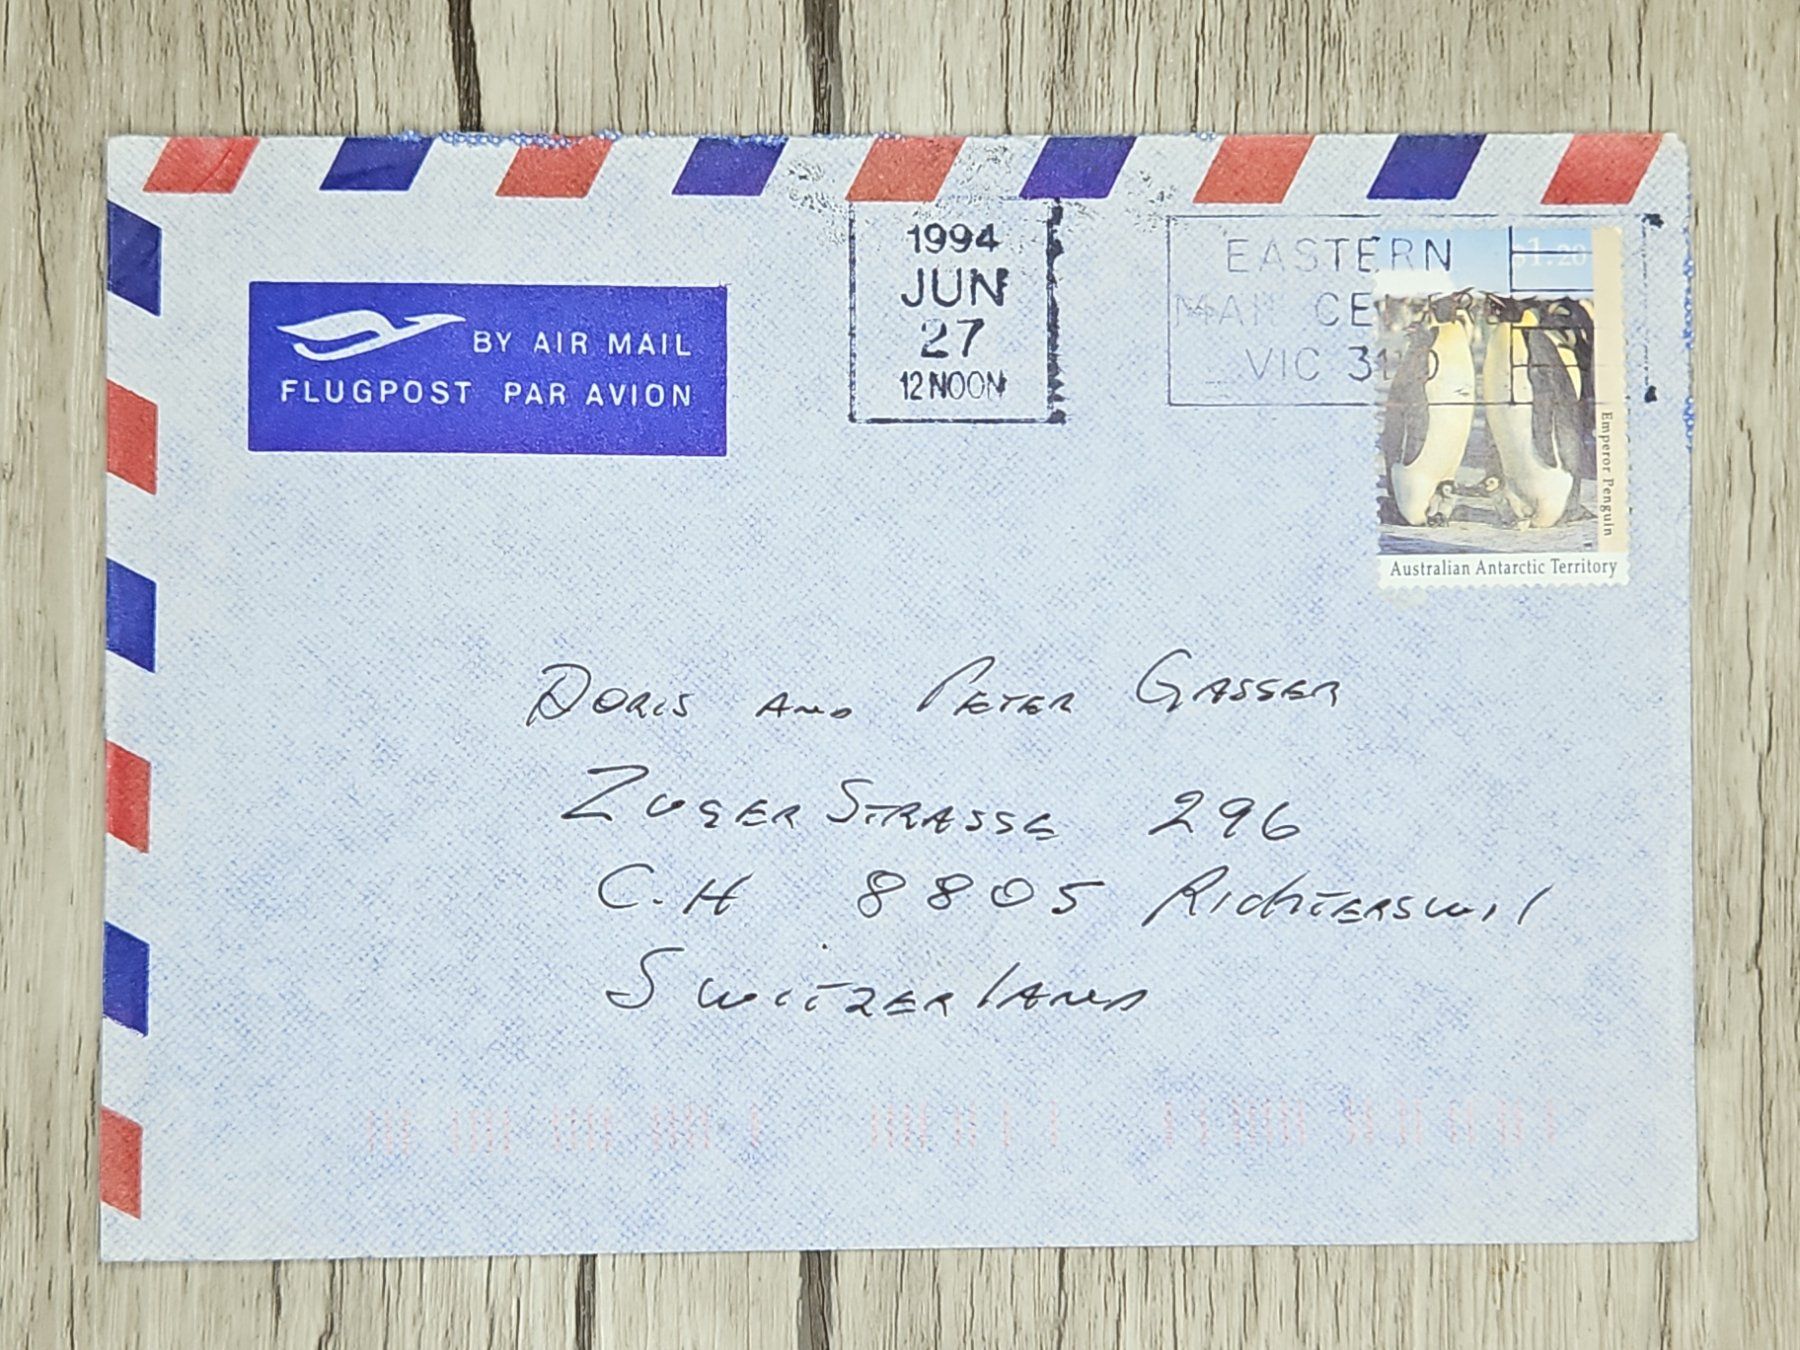 BY AIR MAIL
FLUGPOST PAR AVION
1994
JUN
27
12 NOON
EASTERN
MAIL CENTRE
VIC 3110
$1.20
Emperor Penguin
Australian Antarctic Territory
Doris and Peter Gasser
Zuger Strasse 296
C.H 8805 Richterswil
Switzerland